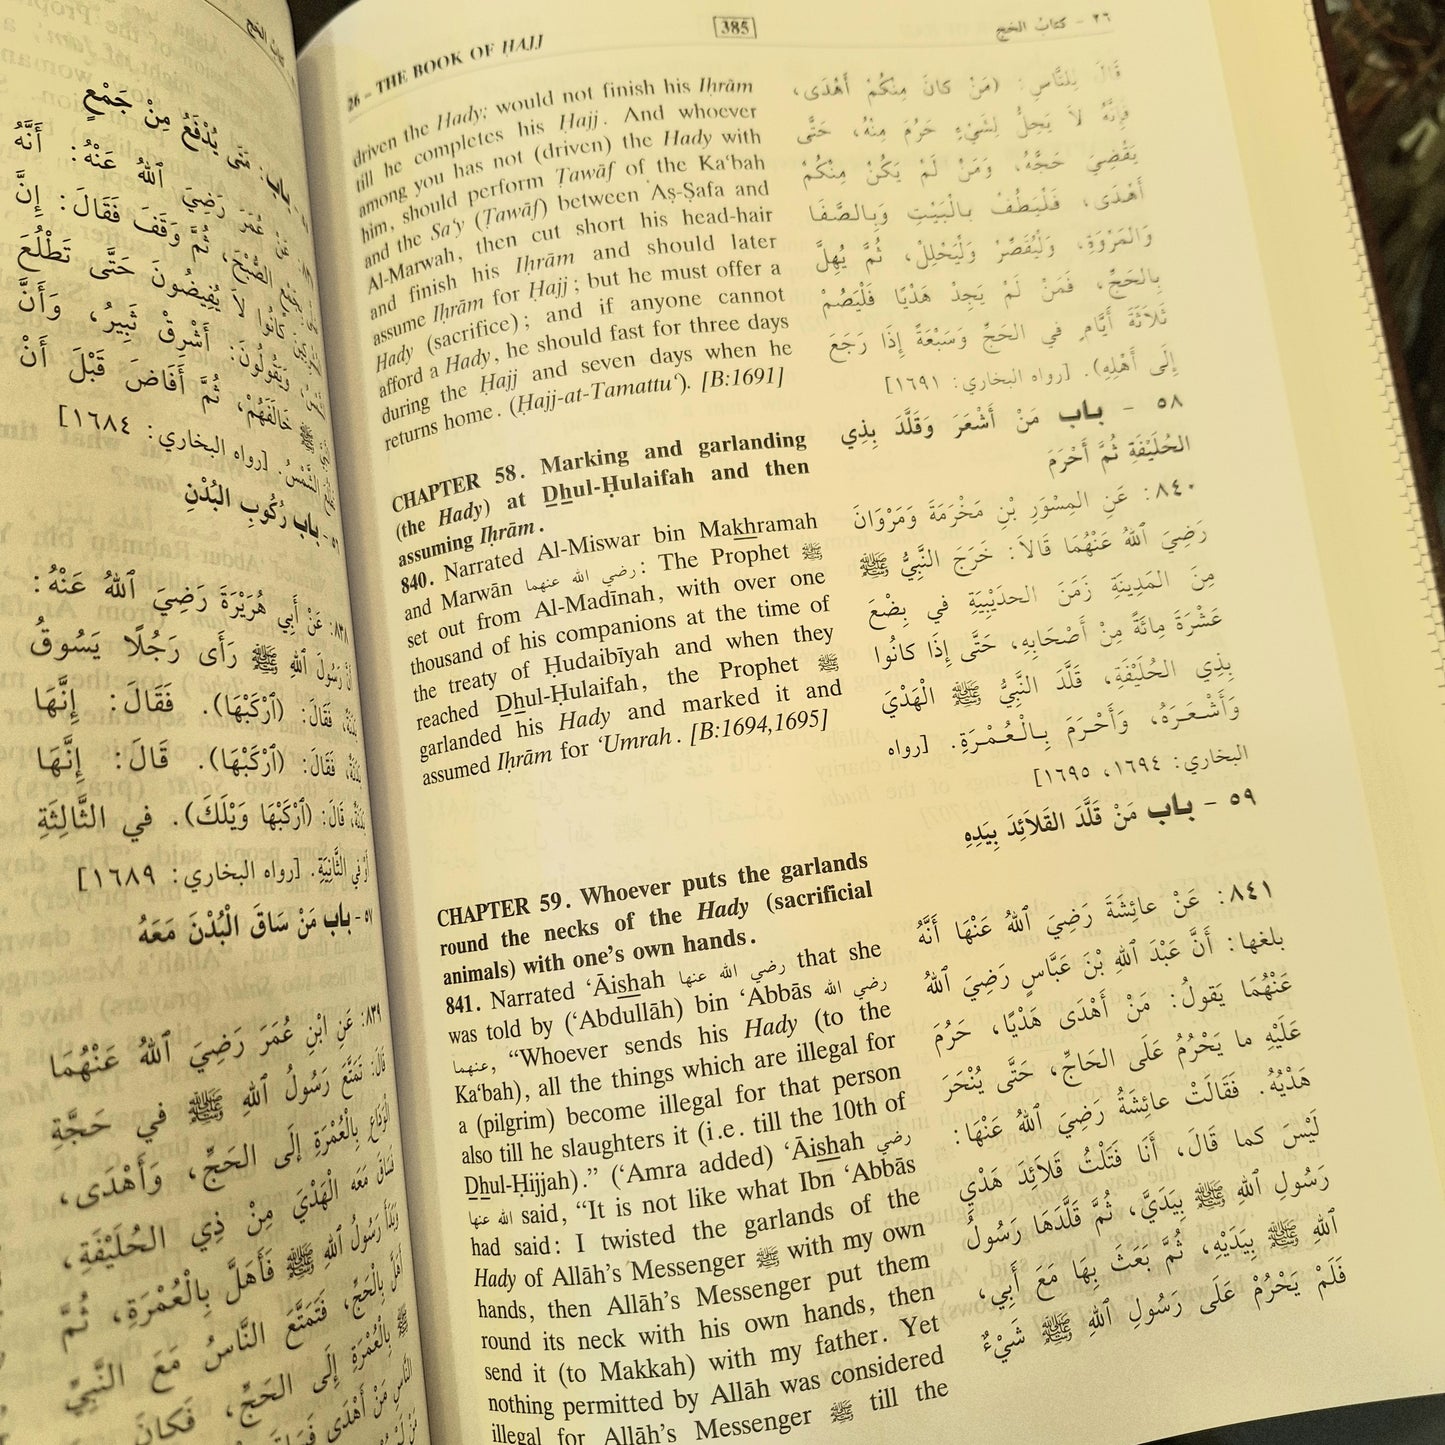 26 – THE BOOK OF ḤAJJ
385
٢٦ - كتابُ الحَج
driven the Hady; would not finish his Iḥrām
till he completes his Ḥajj. And whoever
among you has not (driven) the Hady with
him, should perform Ṭawāf of the Ka‘bah
and the Sa‘y (Ṭawāf) between Aṣ-Ṣafa and
Al-Marwah, then cut short his head-hair
and finish his Iḥrām and should later
assume Iḥrām for Ḥajj; but he must offer a
Hady (sacrifice); and if anyone cannot
afford a Hady, he should fast for three days
during the Ḥajj and seven days when he
returns home. (Ḥajj-at-Tamattu‘). [B:1691]
CHAPTER 58. Marking and garlanding
(the Hady) at Dhul-Ḥulaifah and then
assuming Iḥrām.
840. Narrated Al-Miswar bin Makhramah
and Marwān رضي الله عنهما: The Prophet ﷺ
set out from Al-Madīnah, with over one
thousand of his companions at the time of
the treaty of Ḥudaibīyah and when they
reached Dhul-Ḥulaifah, the Prophet ﷺ
garlanded his Hady and marked it and
assumed Iḥrām for ‘Umrah. [B:1694,1695]
CHAPTER 59. Whoever puts the garlands
round the necks of the Hady (sacrificial
animals) with one’s own hands.
841. Narrated ‘Āishah رضي الله عنها that she
was told by (‘Abdullāh) bin ‘Abbās رضي الله
عنهما, “Whoever sends his Hady (to the
Ka‘bah), all the things which are illegal for
a (pilgrim) become illegal for that person
also till he slaughters it (i.e. till the 10th of
Dhul-Ḥijjah).” (‘Amra added) ‘Āishah رضي
الله عنها said, “It is not like what Ibn ‘Abbās
had said: I twisted the garlands of the
Hady of Allāh’s Messenger ﷺ with my own
hands, then Allāh’s Messenger put them
round its neck with his own hands, then
send it (to Makkah) with my father. Yet
nothing permitted by Allāh was considered
illegal for Allāh’s Messenger ﷺ till the
قَالَ لِلنَّاسِ: (مَنْ كانَ مِنْكُمْ أَهْدَى،
فَإِنَّهُ لَا يَحِلُّ لِشَيْءٍ حَرُمَ مِنْهُ، حَتَّى
يَقْضِيَ حَجَّهُ، وَمَنْ لَمْ يَكُنْ مِنْكُمْ
أَهْدَى، فَلْيَطُفْ بِالْبَيْتِ وَبِالصَّفَا
وَالمَرْوَةِ، وَلْيُقَصِّرْ وَلْيَحْلِلْ، ثُمَّ يُهِلَّ
بِالحَجِّ، فَمَنْ لَمْ يَجِدْ هَدْيًا فَلْيَصُمْ
ثَلَاثَةَ أَيَّامٍ في الحَجِّ وَسَبْعَةً إِذَا رَجَعَ
إِلَى أَهْلِهِ). [رواه البخاري: ١٦٩١]
٥٨ - باب مَنْ أَشْعَرَ وَقَلَّدَ بِذِي
الحُلَيْفَةِ ثُمَّ أَحْرَمَ
٨٤٠: عَنِ المِسْوَرِ بْنِ مَخْرَمَةَ وَمَرْوَانَ
رَضِيَ ٱللهُ عَنْهُمَا قَالَا: خَرَجَ النَّبِيُّ ﷺ
مِنَ المَدِينَةِ زَمَنَ الحدَيْبِيَةِ في بِضْعَ
عَشْرَةَ مِائَةً مِنْ أَصْحَابِهِ، حَتَّى إِذَا كانُوا
بِذِي الحُلَيْفَةِ، قَلَّدَ النَّبِيُّ ﷺ الْهَدْيَ
وَأَشْعَرَهُ، وَأَحْرَمَ بِالْعُمْرَةِ. [رواه
البخاري: ١٦٩٤، ١٦٩٥]
٥٩ - باب مَنْ قَلَّدَ القَلَائِدَ بِيَدِهِ
٨٤١: عَنْ عائِشَةَ رَضِيَ ٱللهُ عَنْهَا أَنَّهُ
بلغها: أَنَّ عَبْدَ ٱللهِ بْنَ عَبَّاسٍ رَضِيَ ٱللهُ
عَنْهُمَا يَقولُ: مَنْ أَهْدَى هَدْيًا، حَرُمَ
عَلَيْهِ ما يَحْرُمُ عَلَى الحَاجِّ، حَتَّى يُنْحَرَ
هَدْيُهُ. فَقَالَتْ عائِشَةُ رَضِيَ ٱللهُ عَنْهَا:
لَيْسَ كما قَالَ، أَنَا فَتَلْتُ قَلَائِدَ هَدْيِ
رَسُولِ ٱللهِ ﷺ بِيَدَيَّ، ثُمَّ قَلَّدَهَا رَسُولُ
ٱللهِ ﷺ بِيَدَيْهِ، ثُمَّ بَعَثَ بِهَا مَعَ أَبِي،
فَلَمْ يَحْرُمْ عَلَى رَسُولِ ٱللهِ ﷺ شَيْءٌ
كتابُ الحَج
باب: مَتَى يُدْفَعُ مِنْ جَمْعٍ
عُمَرَ رَضِيَ ٱللهُ عَنْهُ: أَنَّهُ
الصُّبْحَ، ثُمَّ وَقَفَ فَقَالَ: إِنَّ
كانُوا لَا يُفِيضُونَ حَتَّى تَطْلُعَ
وَيَقُولُونَ: أَشْرِقْ ثَبِيرُ، وَأَنَّ
ﷺ خَالَفَهُمْ، ثُمَّ أَفَاضَ قَبْلَ أَنْ
الشَّمْسُ. [رواه البخاري: ١٦٨٤]
٥٦ - باب رُكُوبِ البُدْنِ
٨٣٨: عَنْ أَبِي هُرَيْرَةَ رَضِيَ ٱللهُ عَنْهُ:
أَنَّ رَسُولَ ٱللهِ ﷺ رَأَى رَجُلًا يَسُوقُ
بَدَنَةً، فَقَالَ: (ٱرْكَبْهَا). فَقَالَ: إِنَّهَا
بَدَنَةٌ، فَقَالَ: (ٱرْكَبْهَا). قَالَ: إِنَّهَا
بَدَنَةٌ، قَالَ: (ٱرْكَبْهَا وَيْلَكَ). في الثَّالِثَةِ
أَوْ في الثَّانِيَةِ. [رواه البخاري: ١٦٨٩]
٥٧ - باب مَنْ سَاقَ الْبُدْنَ مَعَهُ
٨٣٩: عَنِ ابْنِ عُمَرَ رَضِيَ ٱللهُ عَنْهُمَا
قَالَ: تَمَتَّعَ رَسُولُ ٱللهِ ﷺ في حَجَّةِ
الْوَدَاعِ بِالْعُمْرَةِ إِلَى الحَجِّ، وَأَهْدَى،
فَسَاقَ مَعَهُ الْهَدْيَ مِنْ ذِي الحُلَيْفَةِ،
وَبَدَأَ رَسُولُ ٱللهِ ﷺ فَأَهَلَّ بِالْعُمْرَةِ، ثُمَّ
أَهَلَّ بِالحَجِّ، فَتَمَتَّعَ النَّاسُ مَعَ النَّبِيِّ
ﷺ بِالْعُمْرَةِ إِلَى الحَجِّ، فَكانَ
النَّاسِ مَنْ أَهْدَى